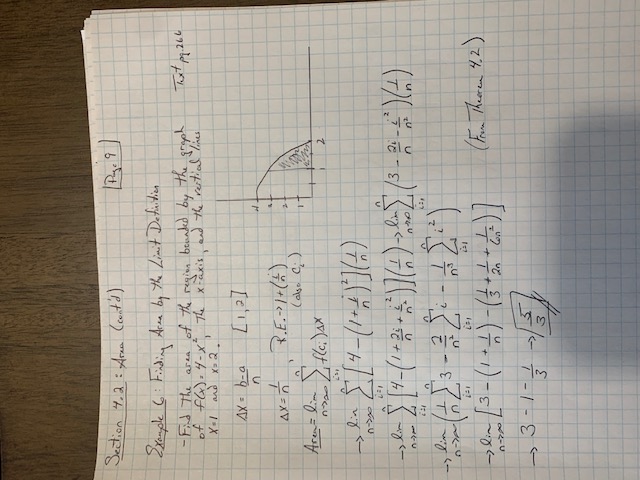 Section 4.2: Area (cont'd)
Page 9
Example 6: Finding Area by the Limit Definition
- Find the area of the region bounded by the graph
of f(x) = 4 - x², the x-axis, and the vertical lines
x=1 and x=2.
Text pg. 266
Δx = b-a/n [1,2]
Δx = 1/n, R.E. → 1 + (i/n)
(also Cᵢ)
4
3
2
1
1
2
Area = lim n→∞ Σ i=1 n f(cᵢ)Δx
→ lim n→∞ Σ i=1 n [4 - (1 + i/n)²](1/n)
→ lim n→∞ Σ i=1 n [4 - (1 + 2i/n + i²/n²)](1/n) → lim n→∞ Σ i=1 n (3 - 2i/n - i²/n²)(1/n)
→ lim n→∞ (1/n Σ i=1 n 3 - 2/n² Σ i=1 n i - 1/n³ Σ i=1 n i²)
→ lim n→∞ [3 - (1 + 1/n) - (1/3 + 1/2n + 1/6n²)] (From Theorem 4.2)
→ 3 - 1 - 1/3 → 5/3